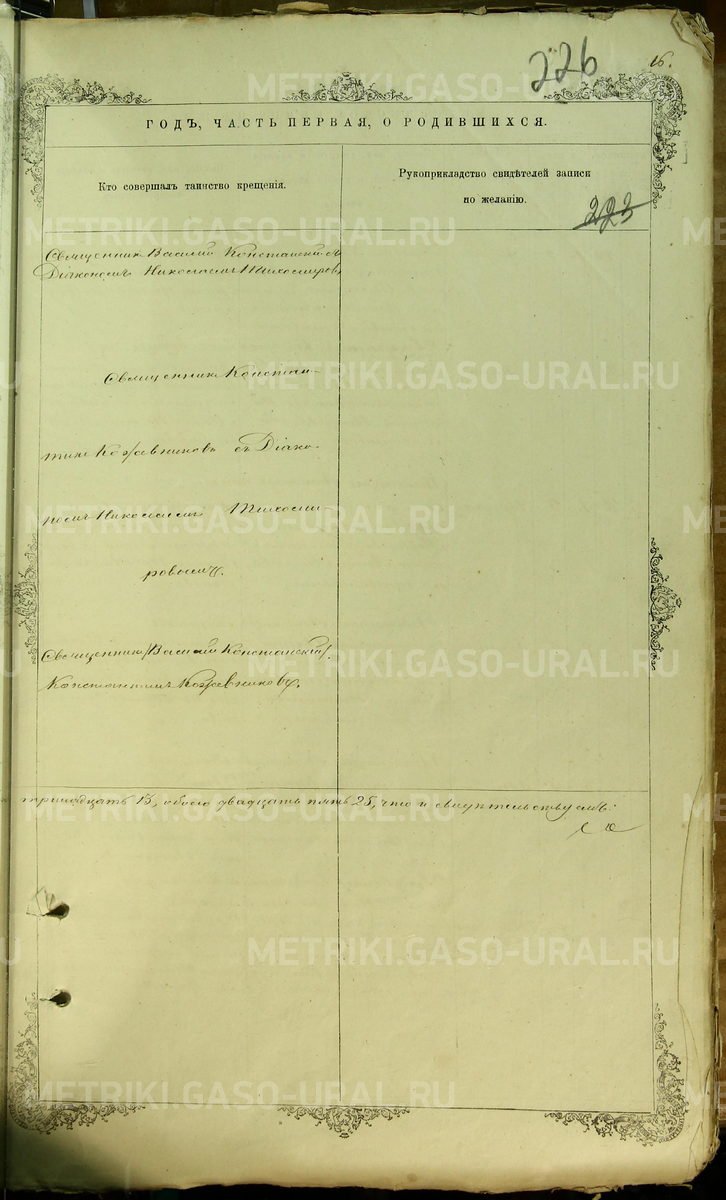 226
16.
ГОДЪ, ЧАСТЬ ПЕРВАЯ, О РОДИВШИХСЯ.
Кто совершалъ таинство крещенія.
Рукоприкладство свидѣтелей записи
по желанію.
223
Священникъ Василій Констанскій съ
Діакономъ Николаемъ Тихомировы
Священникъ Констан-
тинъ Кожевниковъ съ Діако-
номъ Николаемъ Тихоми-
ровымъ.
Священники Василій Констанскій,
Константинъ Кожевниковъ.
тринадцать 13, обоего двадцать пять 25, что и свидѣтельствуемъ:
METRIKI.GASO-URAL.RU